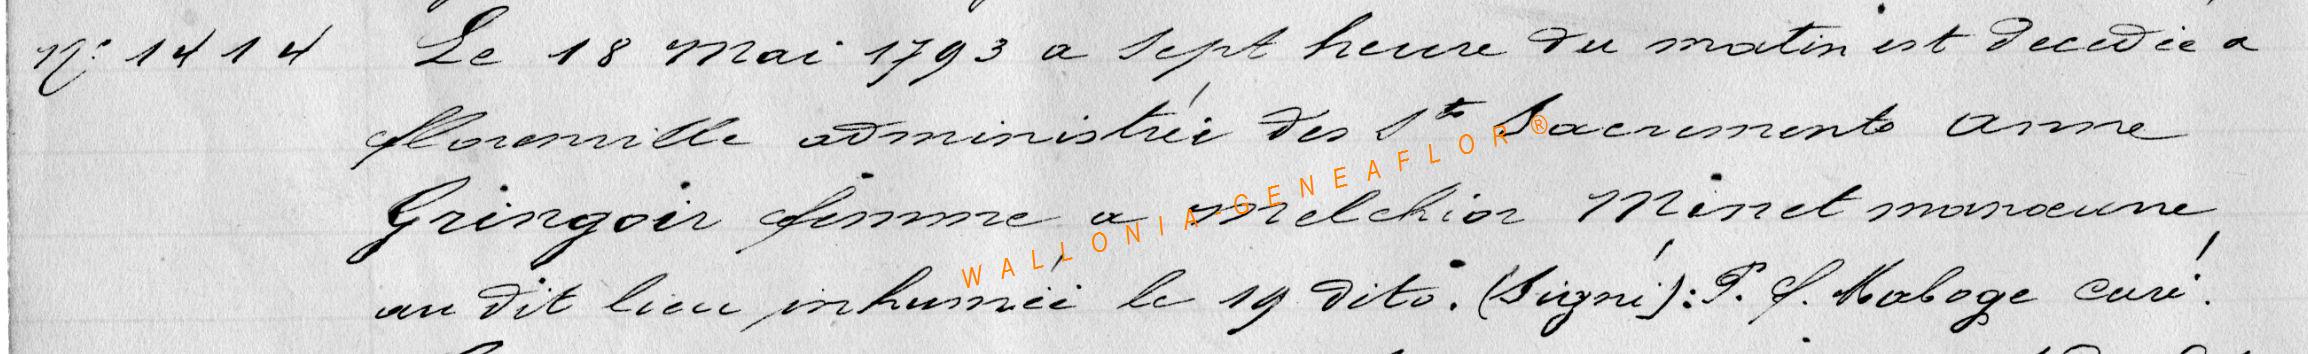 N° 1414 Le 18 Mai 1793 a sept heure du matin est decedée a
florenville administrée des Sts Sacrements anne
Gringoir femme a melchior Minet manœuvre
au dit lieu inhumée le 19 dito. (Signé): P. f. Maboge curé.
WALLONIA-GENEAFLOR®